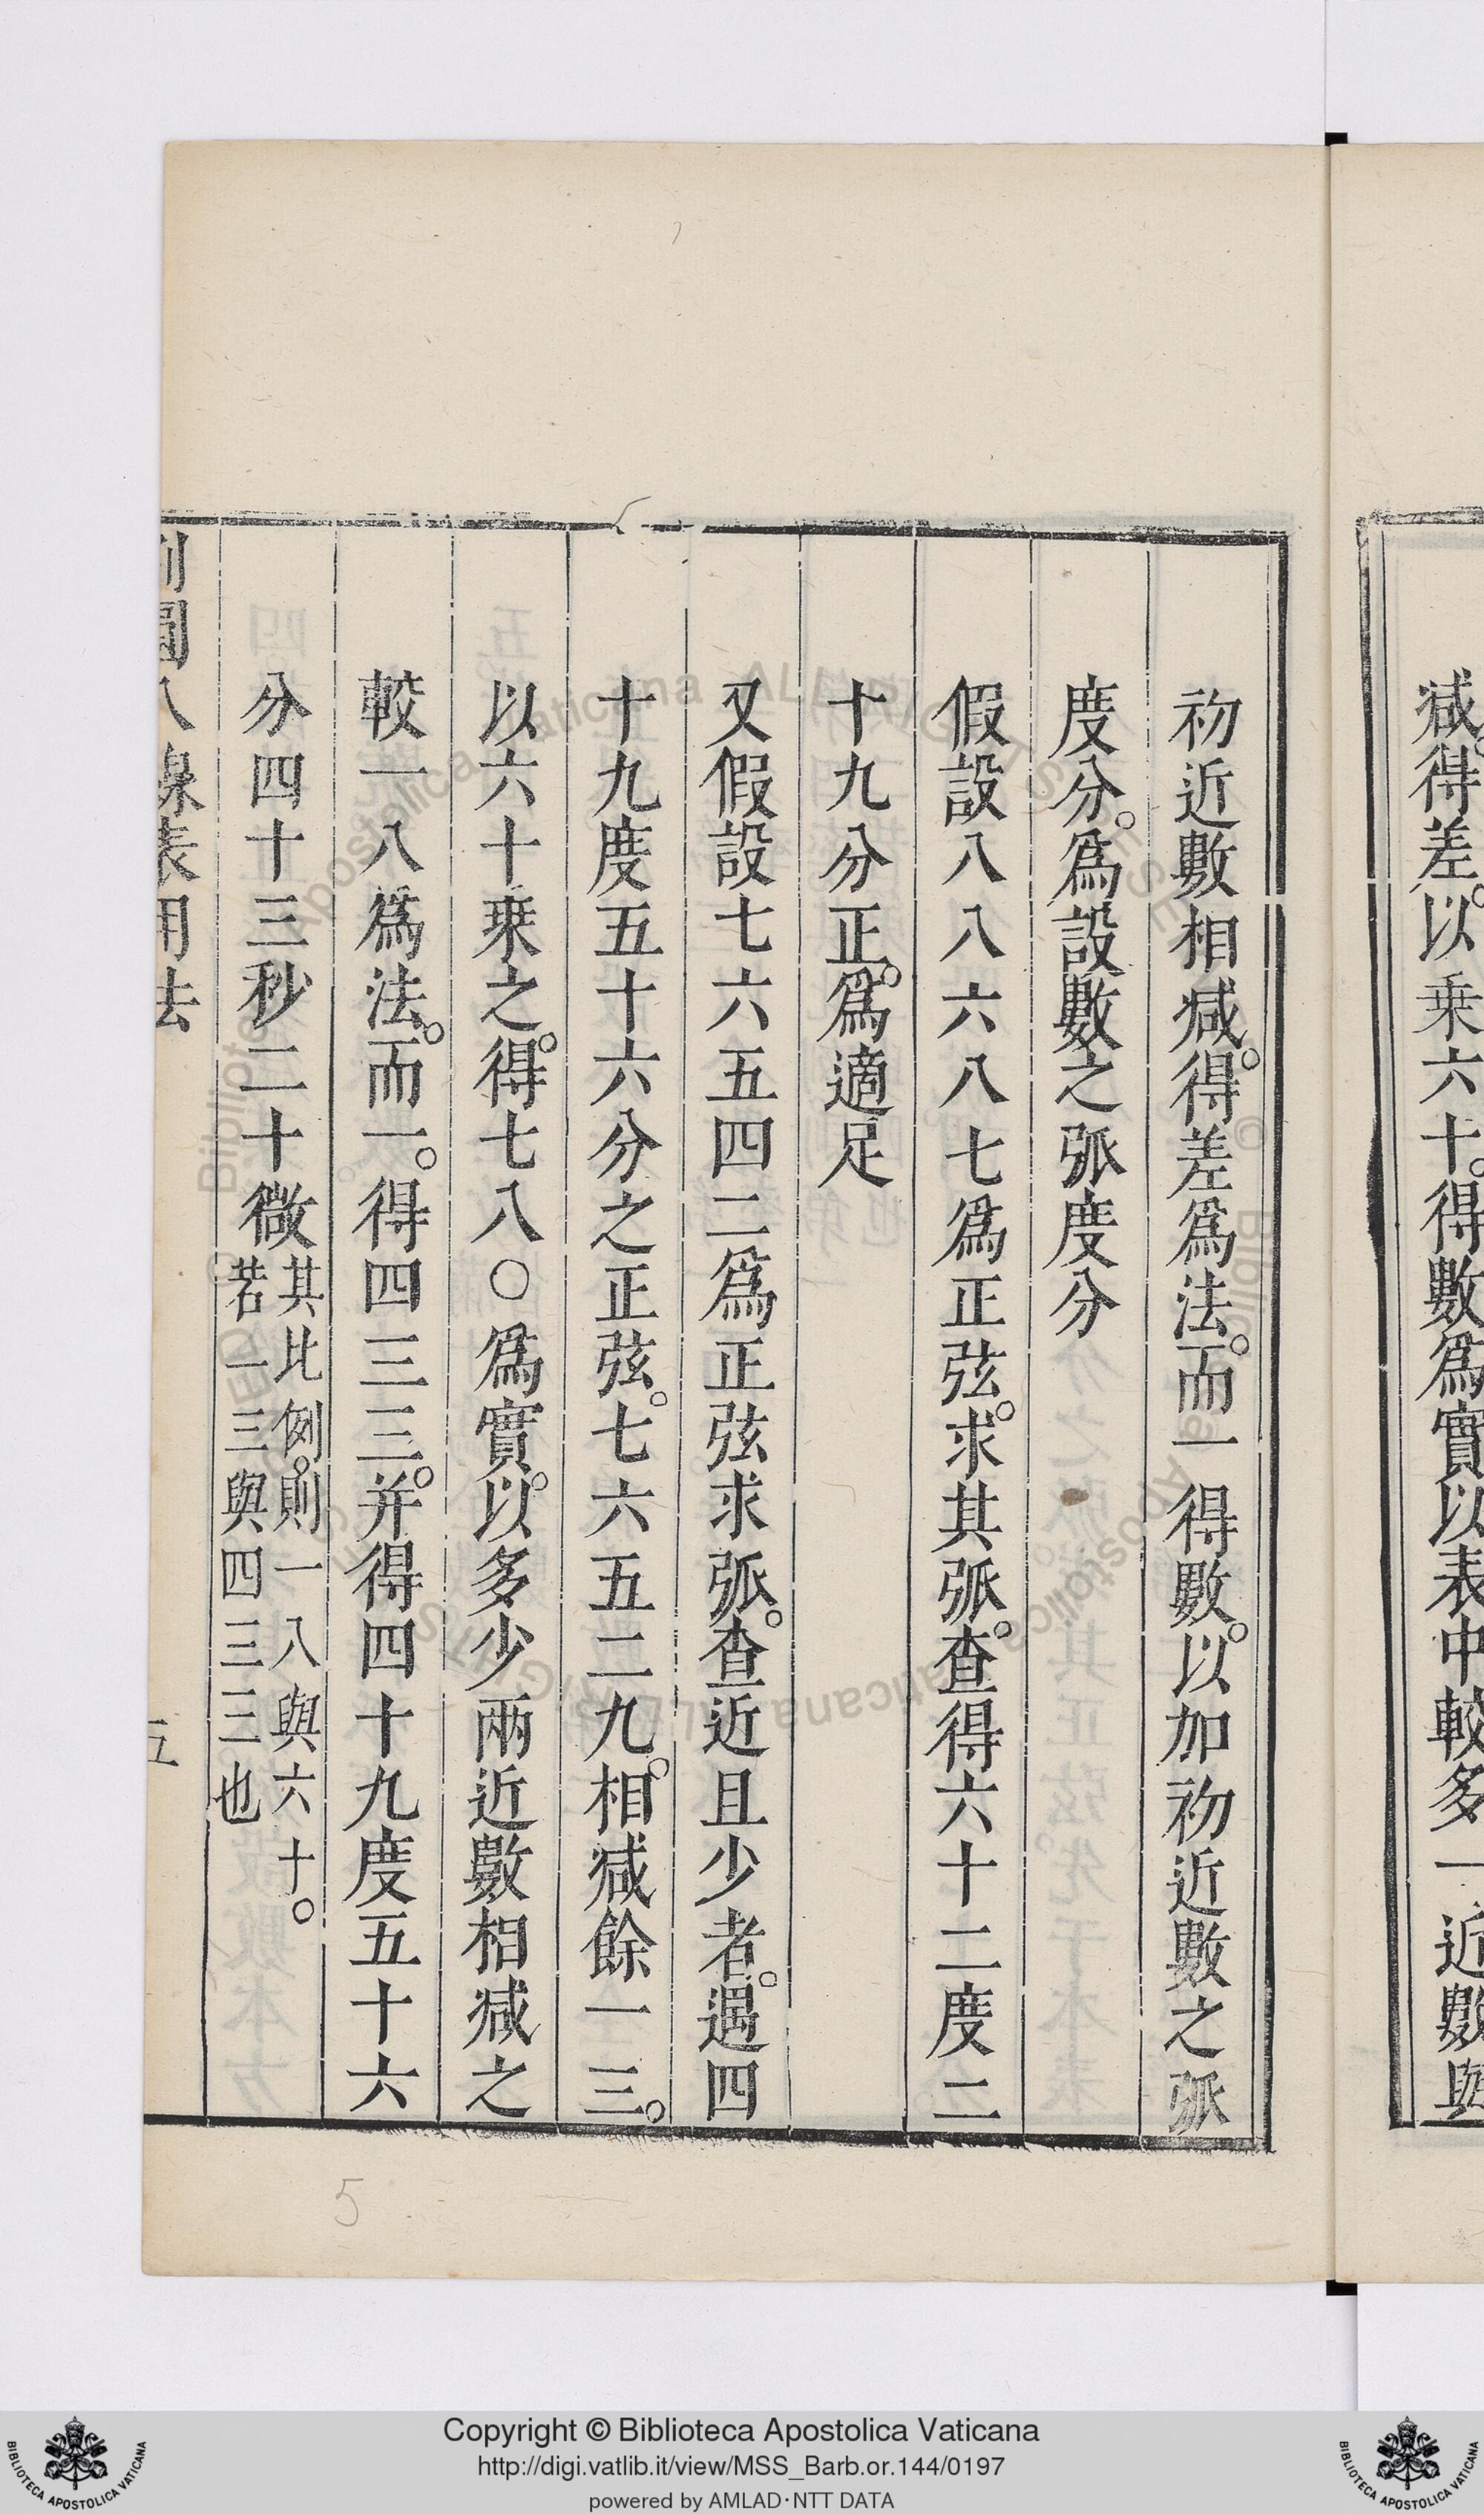 減得差。以乗六十。得數爲實以表中較多一近數與
初近數相減。得差爲法。而一得數。以加初近數之弧
度分。爲設數之弧度分
假設八八六八七爲正弦。求其弧。查得六十二度二
十九分正。爲適足
又假設七六五四二爲正弦求弧。查近且少者。遇四
十九度五十六分之正弦。七六五二九。相減餘一三。
以六十乗之。得七八〇爲實。以多少兩近數相減之
較一八爲法。而一。得四三三。并得四十九度五十六
分四十三秒二十微其比例。則一八與六十。
若一三與四三三也
割圓八線表用法
五
5
Copyright © Biblioteca Apostolica Vaticana
http://digi.vatlib.it/view/MSS_Barb.or.144/0197
powered by AMLAD·NTT DATA
BIBLIOTECA APOSTOLICA VATICANA
BIBLIOTECA APOSTOLICA VATICANA